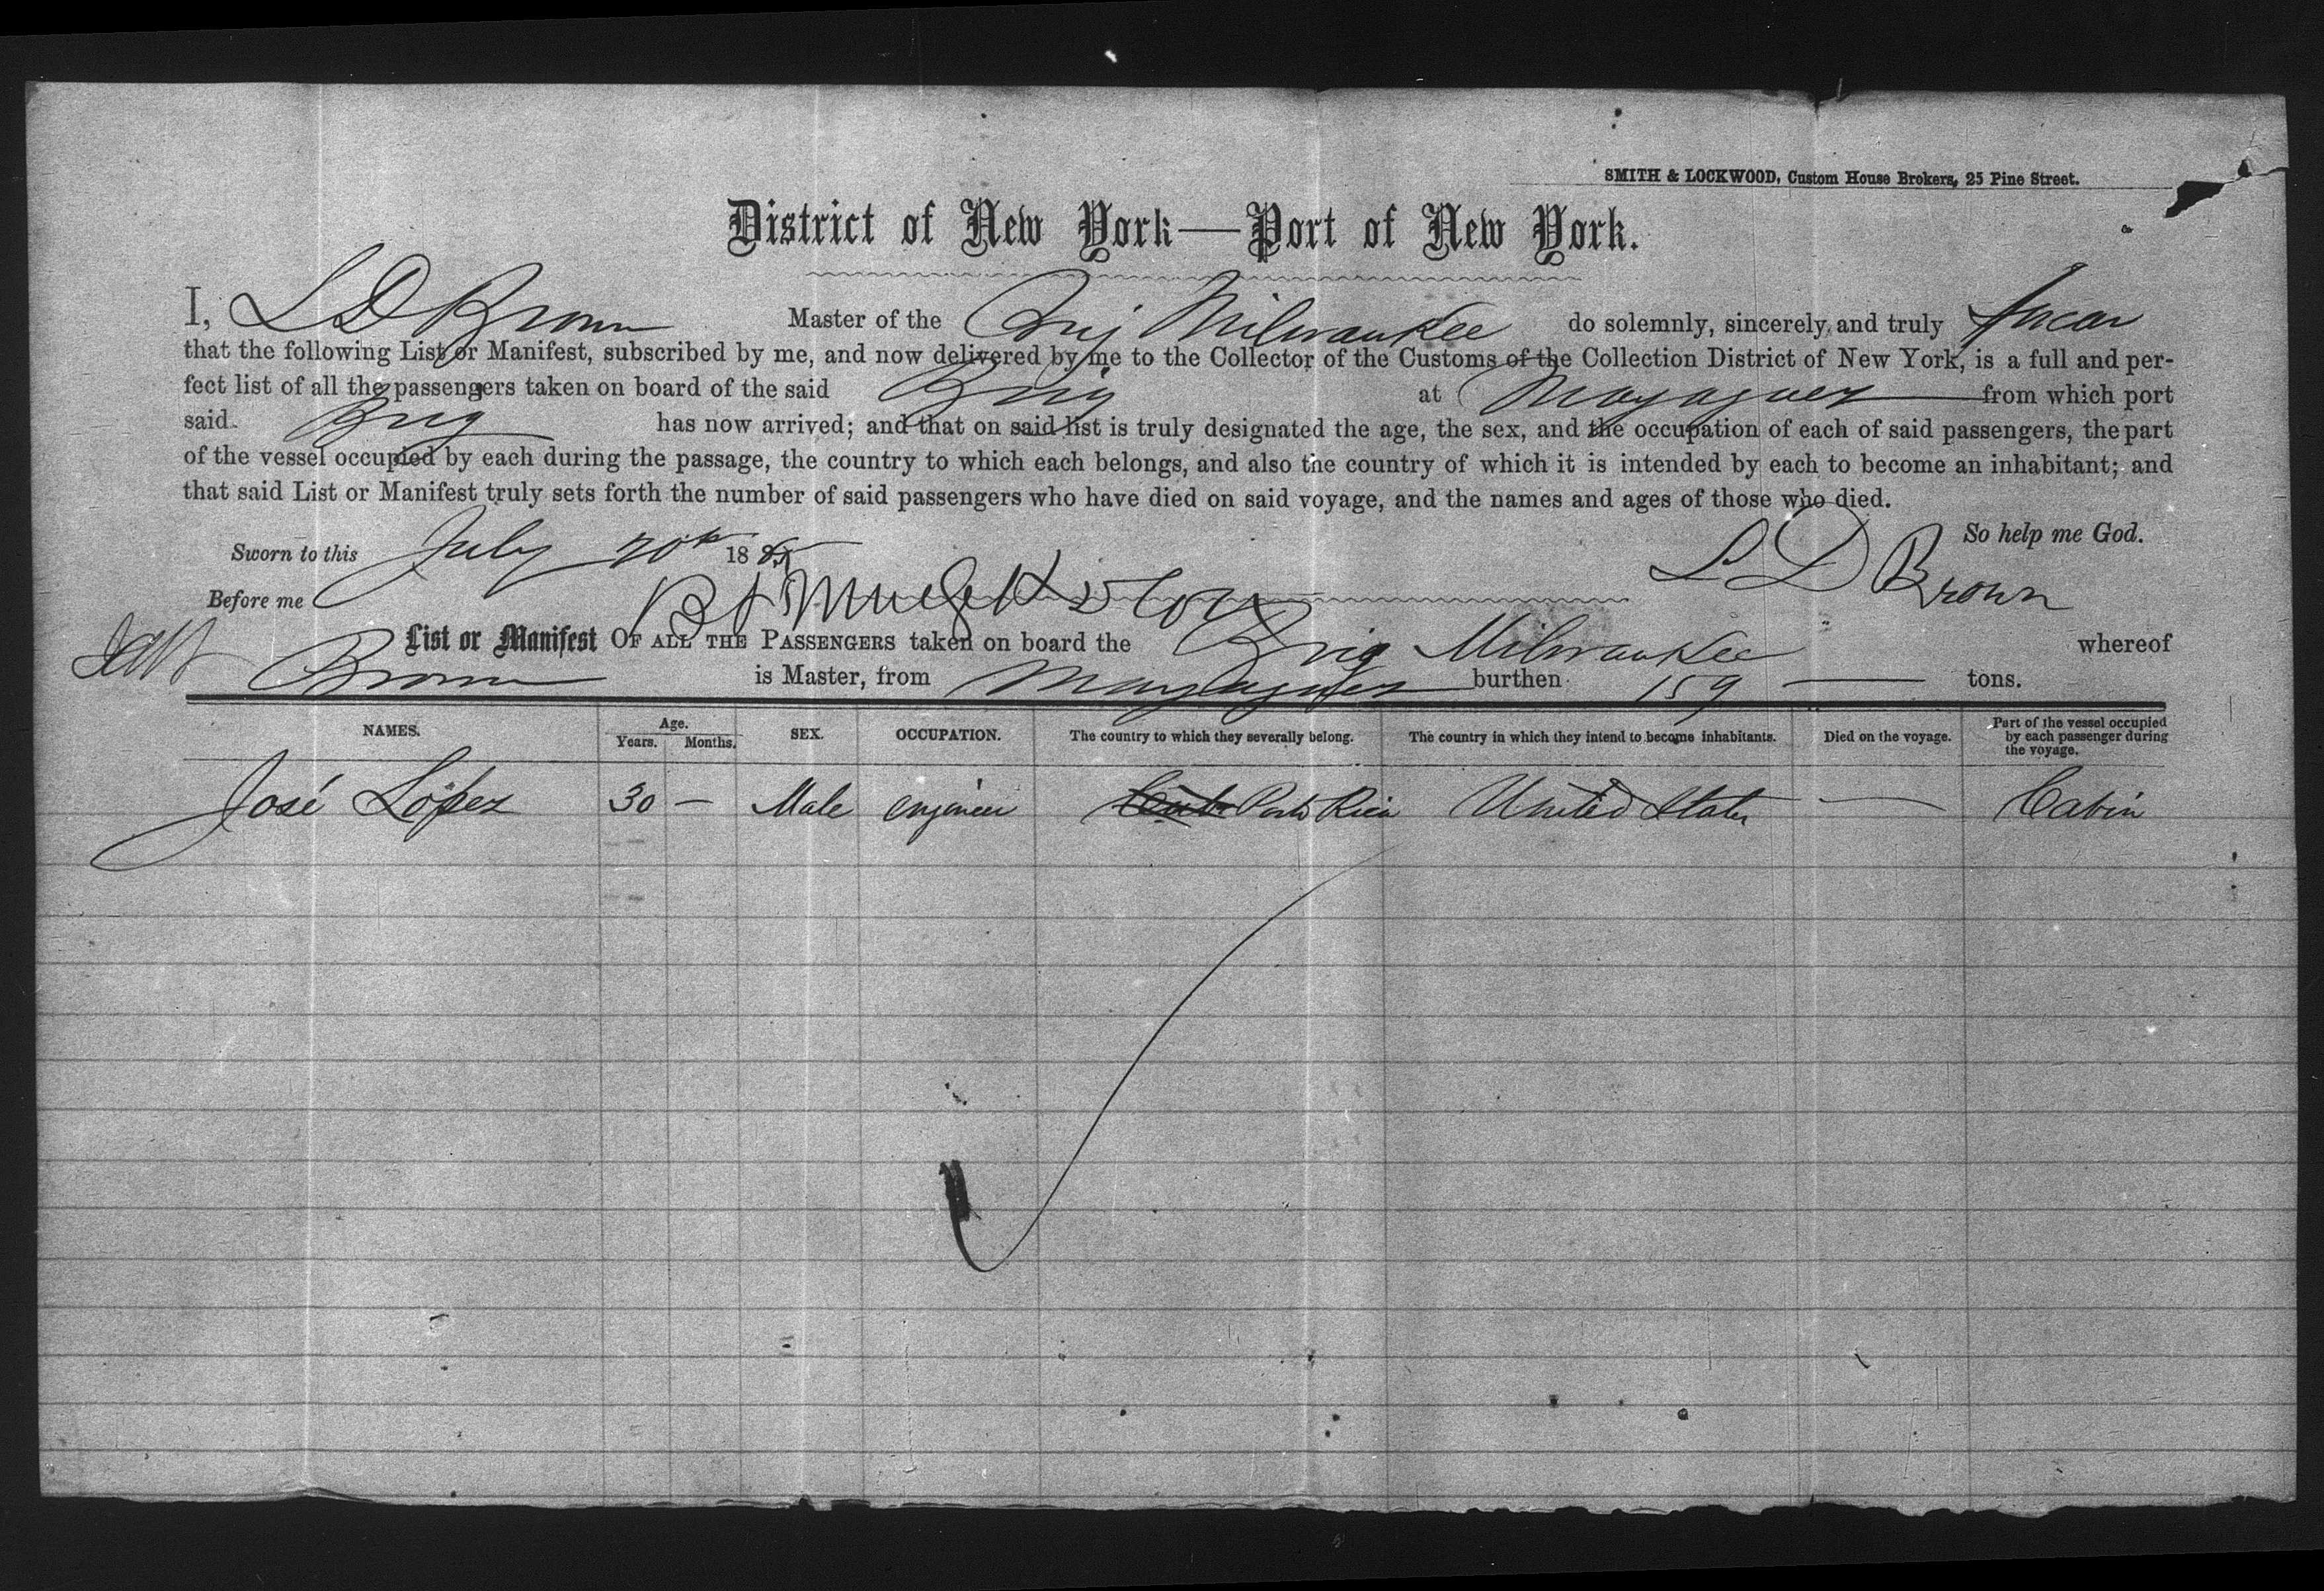 SMITH & LOCKWOOD, Custom House Brokers, 25 Pine Street.
District of New York—Port of New York.
I, L D Brown Master of the Brig Milwaukee do solemnly, sincerely, and truly Swear
that the following List or Manifest, subscribed by me, and now delivered by me to the Collector of the Customs of the Collection District of New York, is a full and per-
fect list of all the passengers taken on board of the said Brig at Mayaguez from which port
said Brig has now arrived; and that on said list is truly designated the age, the sex, and the occupation of each of said passengers, the part
of the vessel occupied by each during the passage, the country to which each belongs, and also the country of which it is intended by each to become an inhabitant; and
that said List or Manifest truly sets forth the number of said passengers who have died on said voyage, and the names and ages of those who died.
So help me God.
Sworn to this July 20th 18
L D Brown
Before me
List or Manifest OF ALL THE PASSENGERS taken on board the Brig Milwaukee whereof
Brown is Master, from Mayaguez burthen 159 — tons.
NAMES. Age. Years. Months. SEX. OCCUPATION. The country to which they severally belong. The country in which they intend to become inhabitants. Died on the voyage. Part of the vessel occupied by each passenger during the voyage.
José López 30 — Male engineer Cuba Porto Rico United States — Cabin